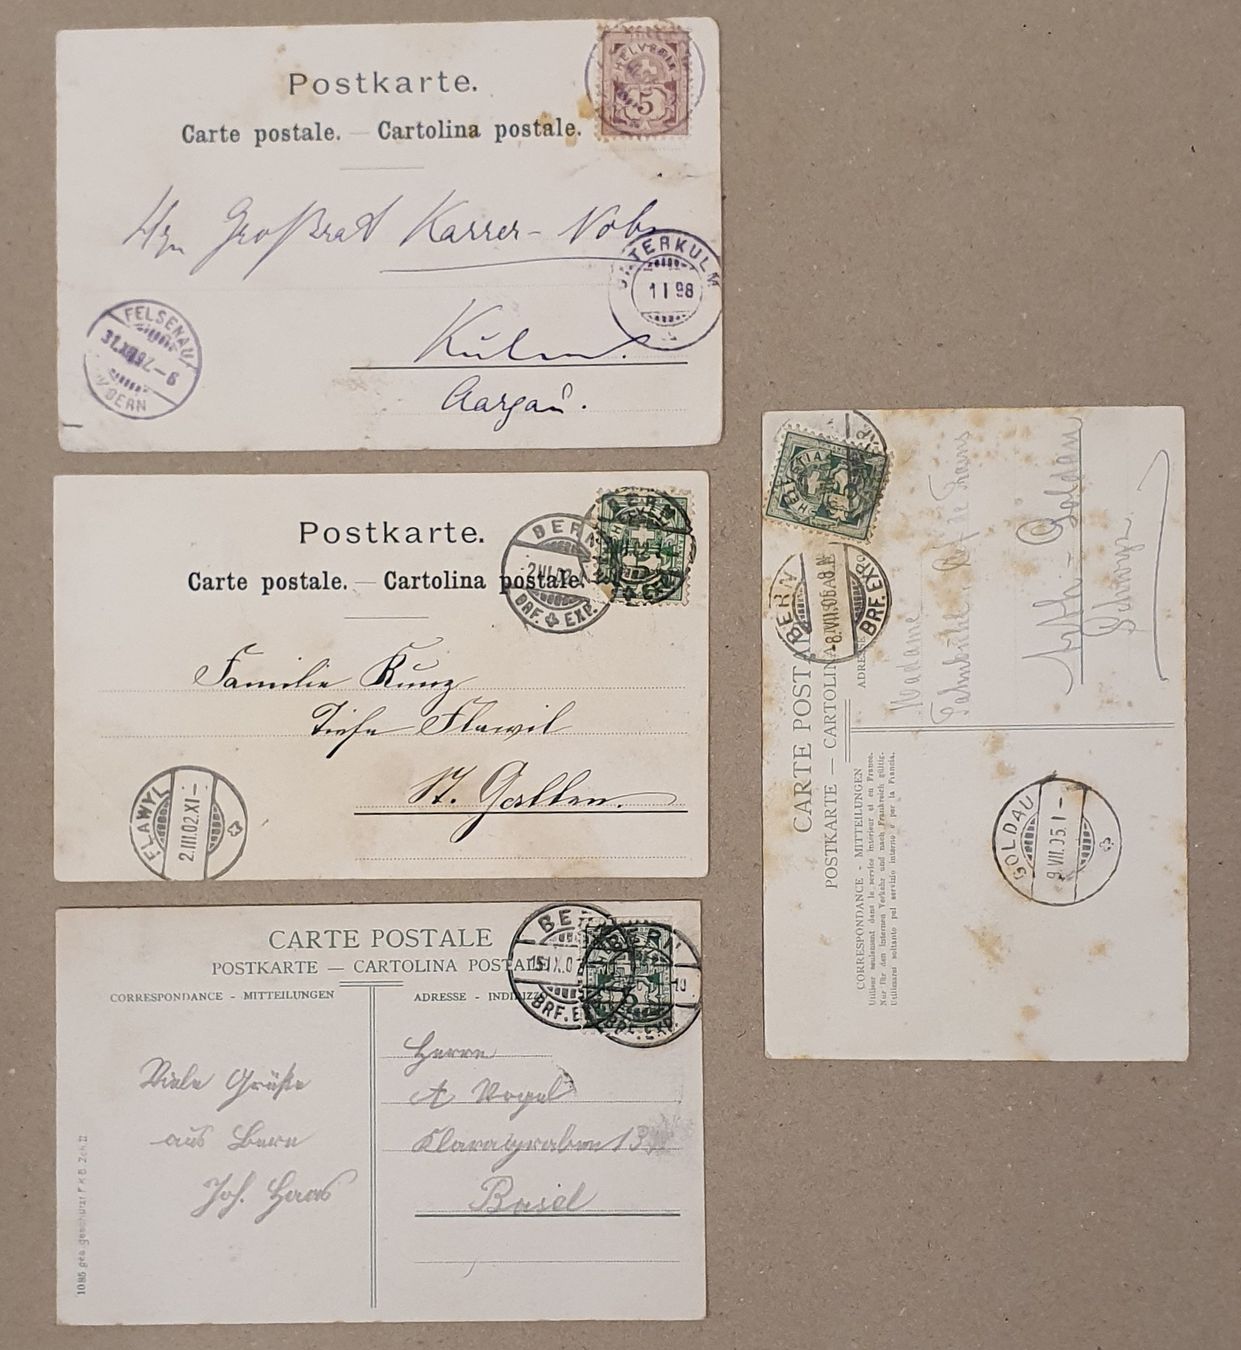 Postkarte.
Carte postale. — Cartolina postale.
HELVETIA
5
Hrn Großrat Karrer-
UNTERKULM
1 I 98
FELSENAU
31.XII.97.-9
BERN
Kulm.
Aargau.
Postkarte.
Carte postale. — Cartolina postale.
BERN
BRF. EXP.
Familie Kunz
Flawil
St. Gallen.
FLAWYL
2.III.02.XI-
CARTE POSTALE
POSTKARTE — CARTOLINA POSTALE
CORRESPONDANCE - MITTEILUNGEN
ADRESSE - INDIRIZZO
BERN
BRF. EXP.
BERN
BRF. EXP.
Viele Grüße
aus Bern
Joh. Haas
Herrn
A Vogel
Klaragraben
Basel
HELVETIA
5
BERN
BRF. EXP.
CARTE POSTALE
POSTKARTE — CARTOLINA
ADRESSE
Madame
Chef de Trains
Arth-Goldau
Schwyz.
CORRESPONDANCE - MITTEILUNGEN
Utiliser seulement dans le service intérieur et en France.
Nur für den internen Verkehr und nach Frankreich gültig.
Utilizzarsi soltanto pel servizio interno e per la Francia.
GOLDAU